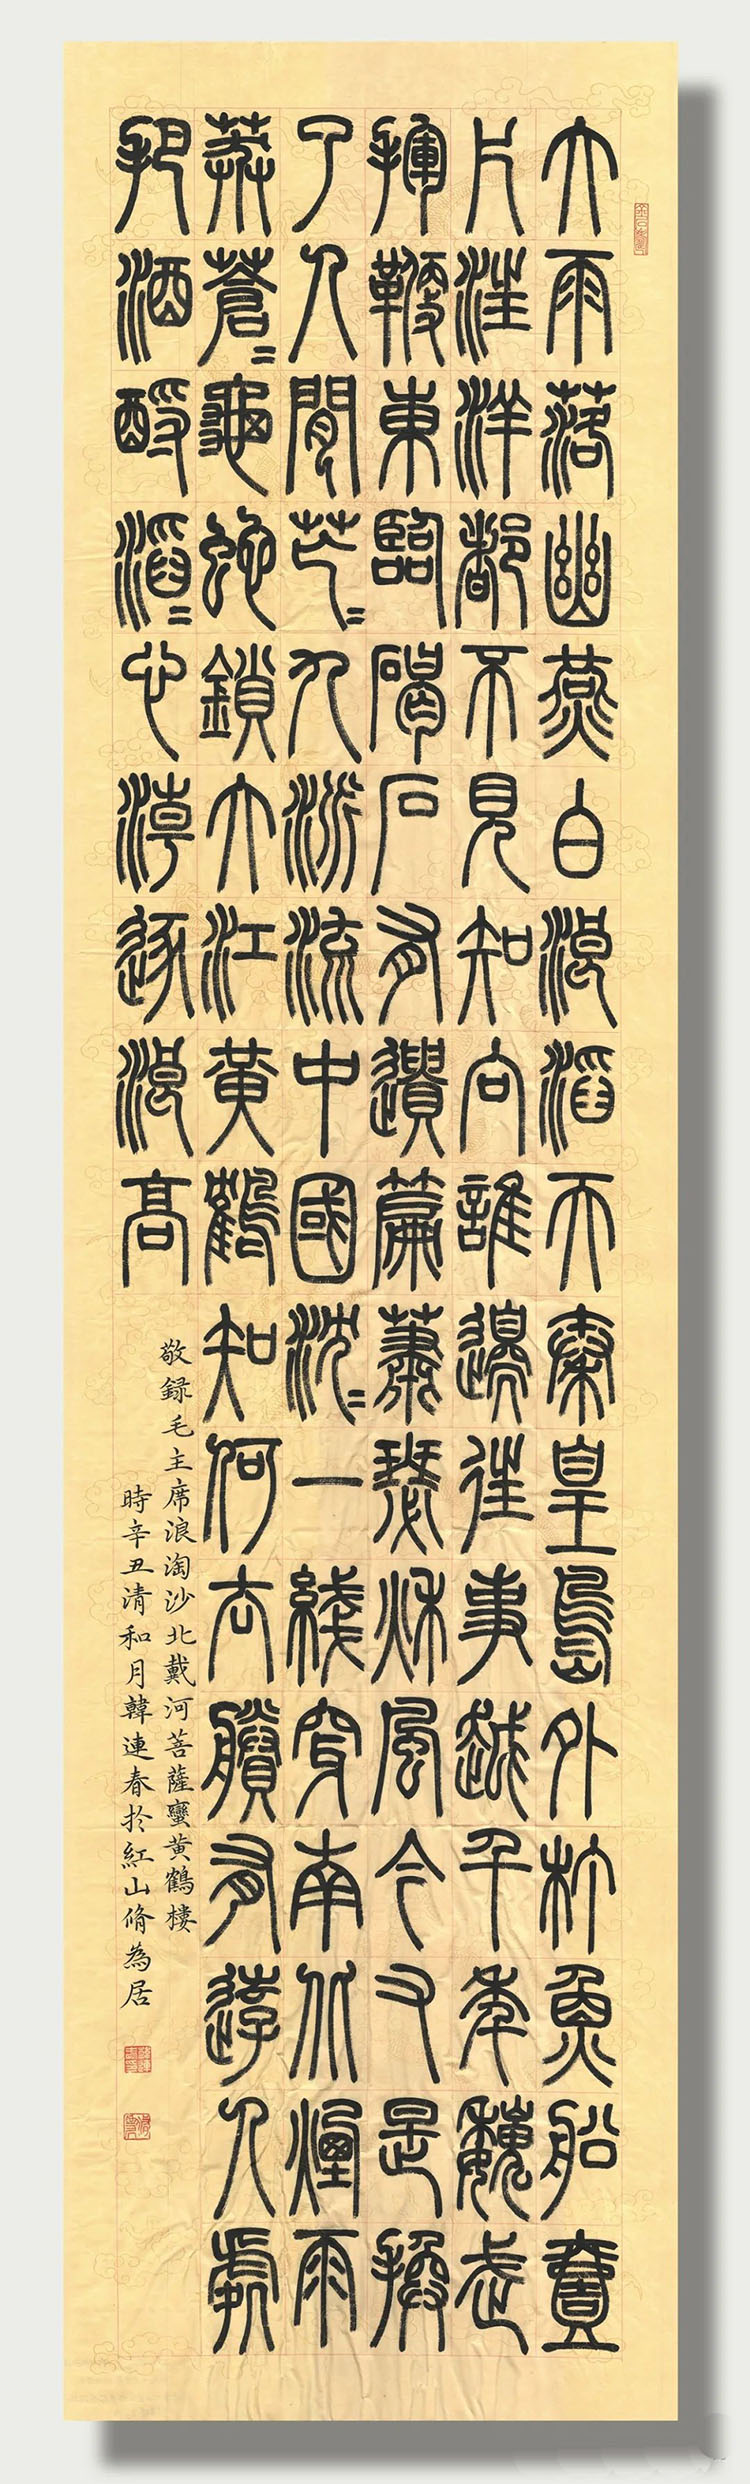 大雨落幽燕白浪滔天秦皇島外打魚船壹
片汪洋都不見知向誰邊往事越千年魏武
揮鞭東臨碣石有遺篇蕭瑟秋風今又是換
了人間茫〻九派流中國沈〻一綫穿南北煙雨
莽蒼〻龜蛇鎖大江黃鶴知何去賸有遊人處
把酒酹滔〻心潮逐浪高
敬録毛主席浪淘沙北戴河菩薩蠻黄鶴樓
時辛丑清和月韓連春於紅山脩為居